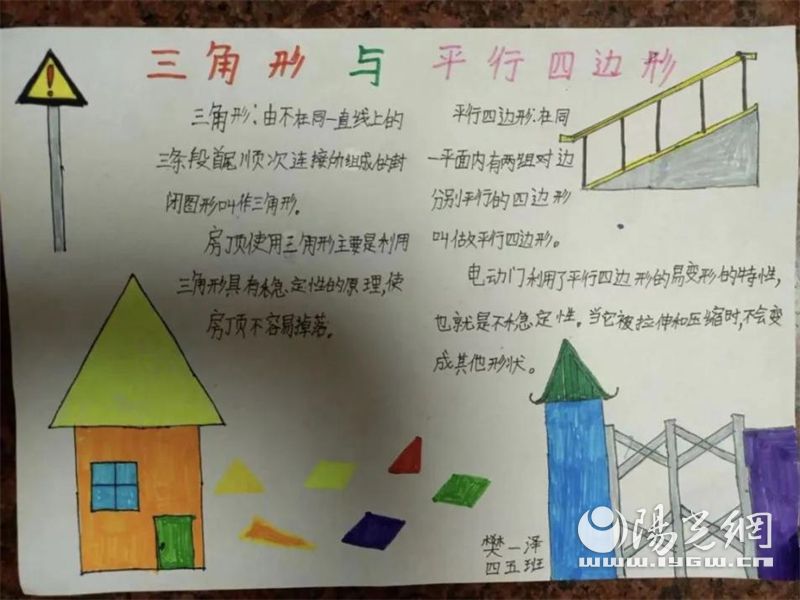 三角形 与 平行四边形
三角形:由不在同一直线上的
三条段首尾顺次连接的组成的封
闭图形叫作三角形。
房顶使用三角形主要是利用
三角形具有稳定性的原理,使
房顶不容易掉落。
平行四边形:在同
一平面内有两组对边
分别平行的四边形
叫做平行四边形。
电动门利用了平行四边形的易变形的特性,
也就是不稳定性。当它被拉伸和压缩时,不会变
成其他形状。
樊一泽
四五班
陽光網
www.iygw.cn